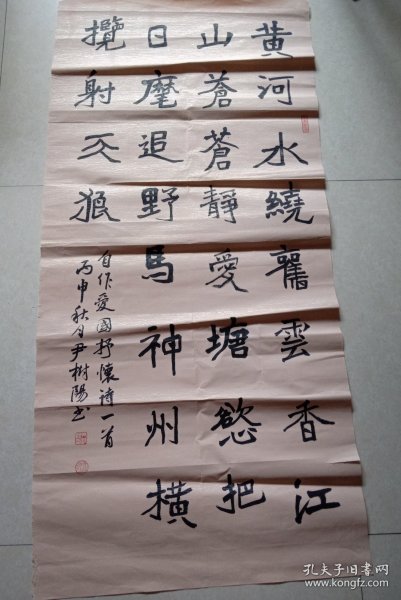 黄河水繞舊雲香江
山蒼蒼靜愛塘慾把
日麾追野馬神州橫
攬射天狼
自作愛國抒懷詩一首
丙申秋月尹樹陽书
孔夫子旧书网